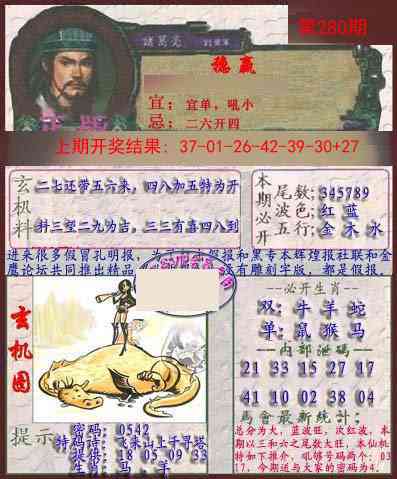 第280期
諸葛亮
稳赢
宜：宜单，吼小
忌：二六开四
上期开奖结果：37-01-26-42-39-30+27
玄机料
二七还带五六来，四八加五特为开
料三望二九为吉，三三有喜四八到
本期必开
尾数；345789
波色；红 蓝
五行；金 木 水
进来很多假冒孔明报，
鹰论坛共同推出精品
有雕刻字版，都是假报，
玄机图
--必开生肖--
双：牛 羊 蛇
单：鼠 猴 马
--内部泄码--
21 33 15 27 17
41 10 02 38 04
馬會最新统计：
总分为大，蓝波旺，次红波，本
期以三和六之尾数大旺，本仙机
特如下推介，吼够号码两个：03
17，今期送与大家的密码为4.
提示
密码：0542
特码诗：飞来山上千寻塔
提供：18 05 09 33
生肖：马、羊